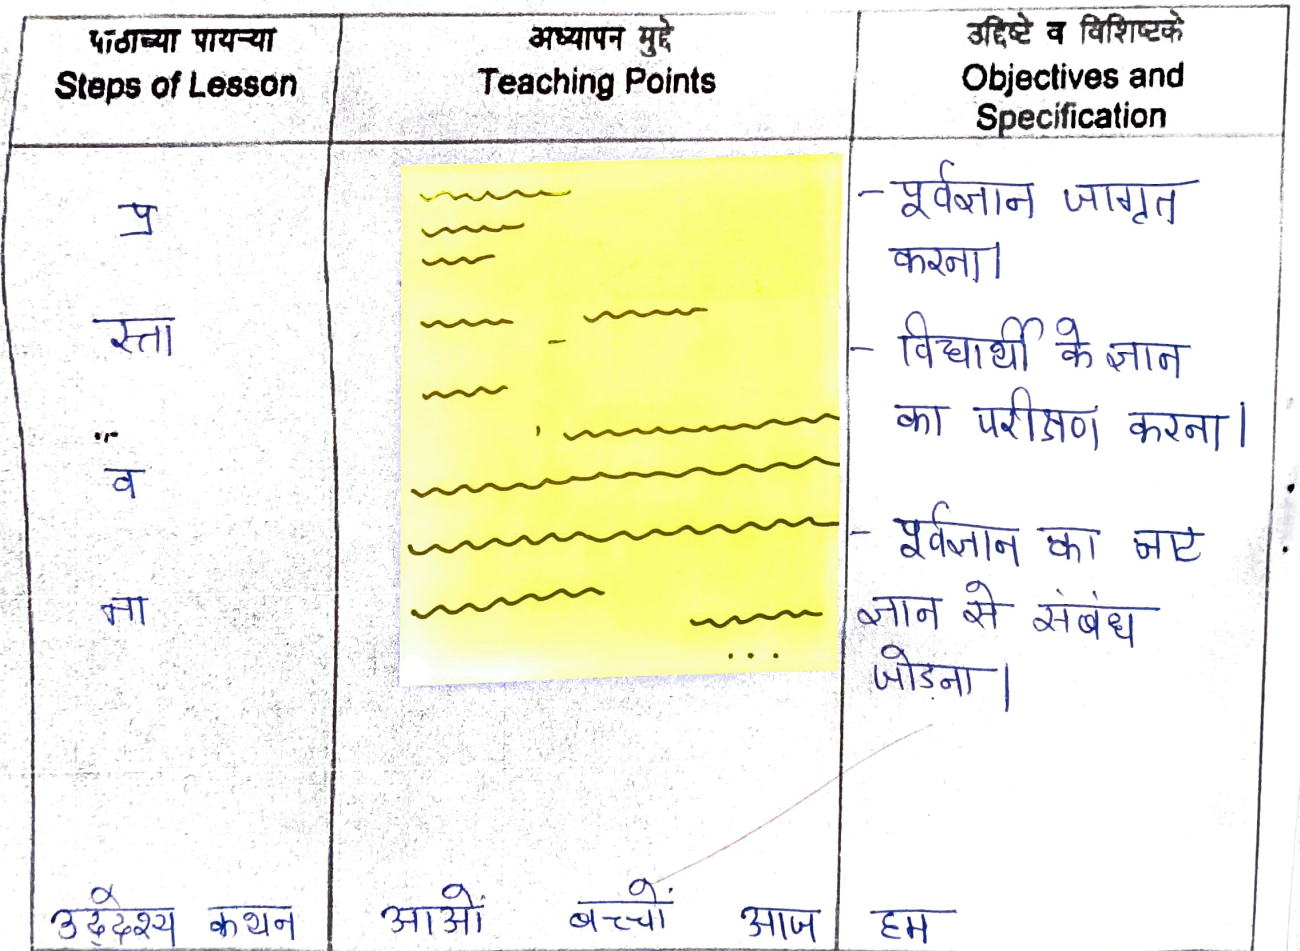 पाठाच्या पायऱ्या
Steps of Lesson
अध्यापन मुद्दे
Teaching Points
उद्दिष्टे व विशिष्टके
Objectives and
Specification
प्र
स्ता
व
ना
- पूर्वज्ञान जागृत
करना।
- विद्यार्थी के ज्ञान
का परीक्षण करना।
- पूर्वज्ञान का नए
ज्ञान से संबंध
जोडना।
उद्देश्य कथन आओं बच्चों आज हम